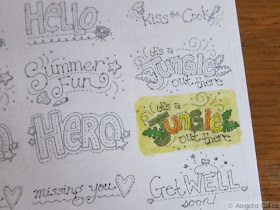 Hello
Kiss the Cook!
Summer
fun
(it's a
Jungle
out there
Hero
(it's a
Jungle
out there
missing you
Get WELL
soon!
© Angela Coles